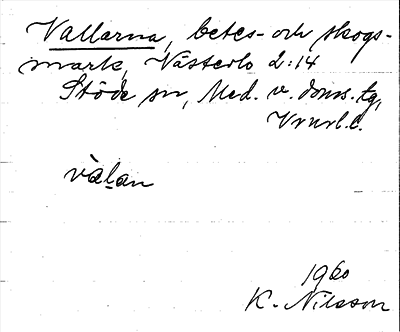 Vallarna, betes- och skogs-
mark, Västerlo 2:14
Stöde sn, Med. v. doms. tg,
vàḷan
1960
K. Nilsson